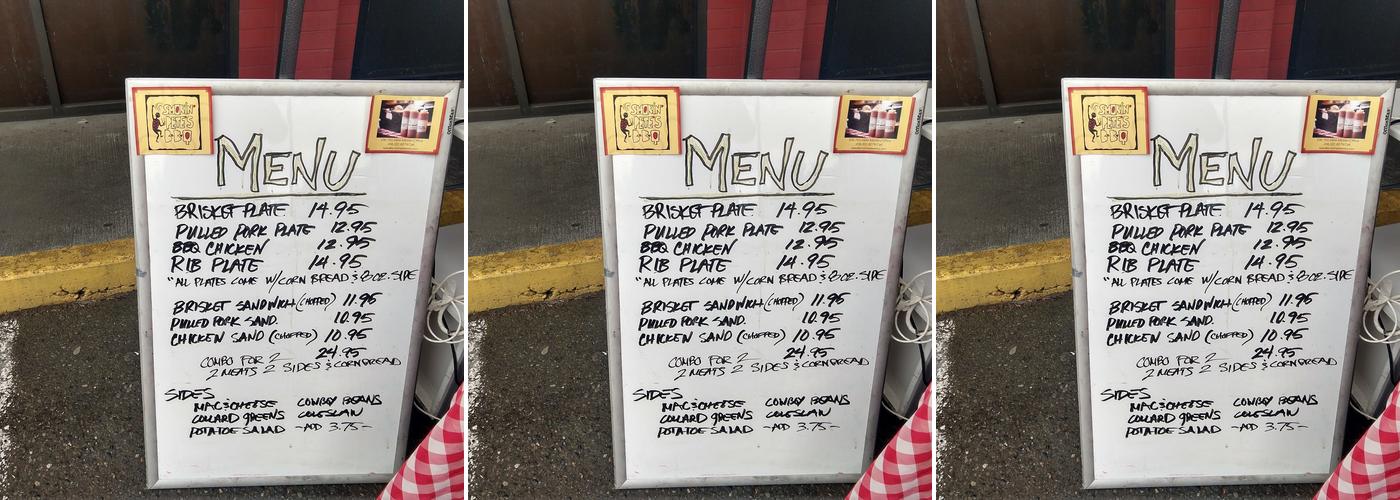 SMOKIN'
PETE'S
BBQ
MENU
BRISKET PLATE 14.95
PULLED PORK PLATE 12.95
BBQ CHICKEN 12.95
RIB PLATE 14.95
"ALL PLATES COME W/CORN BREAD & 8OZ. SIDE
BRISKET SANDWICH (CHOPPED) 11.95
PULLED PORK SAND. 10.95
CHICKEN SAND (CHOPPED) 10.95
COMBO FOR 2 24.95
2 MEATS 2 SIDES & CORNBREAD
SIDES
MAC & CHEESE COWBOY BEANS
COLLARD GREENS COLESLAW
POTATOE SALAD -ADD 3.75-
SMOKIN'
PETE'S
BBQ
MENU
BRISKET PLATE 14.95
PULLED PORK PLATE 12.95
BBQ CHICKEN 12.95
RIB PLATE 14.95
"ALL PLATES COME W/CORN BREAD & 8OZ. SIDE
BRISKET SANDWICH (CHOPPED) 11.95
PULLED PORK SAND. 10.95
CHICKEN SAND (CHOPPED) 10.95
COMBO FOR 2 24.95
2 MEATS 2 SIDES & CORNBREAD
SIDES
MAC & CHEESE COWBOY BEANS
COLLARD GREENS COLESLAW
POTATOE SALAD -ADD 3.75-
SMOKIN'
PETE'S
BBQ
MENU
BRISKET PLATE 14.95
PULLED PORK PLATE 12.95
BBQ CHICKEN 12.95
RIB PLATE 14.95
"ALL PLATES COME W/CORN BREAD & 8OZ. SIDE
BRISKET SANDWICH (CHOPPED) 11.95
PULLED PORK SAND. 10.95
CHICKEN SAND (CHOPPED) 10.95
COMBO FOR 2 24.95
2 MEATS 2 SIDES & CORNBREAD
SIDES
MAC & CHEESE COWBOY BEANS
COLLARD GREENS COLESLAW
POTATOE SALAD -ADD 3.75-